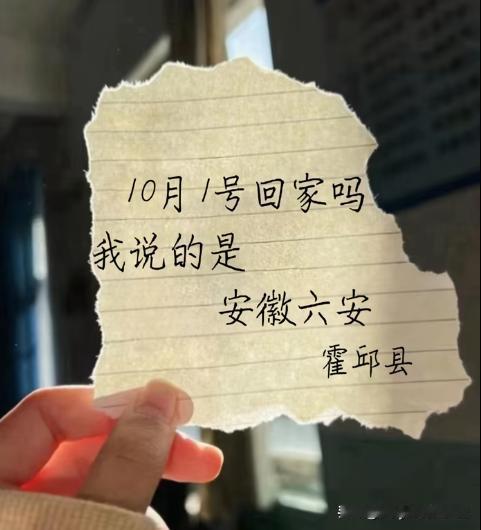 10月1号回家吗
我说的是
安徽六安
霍邱县